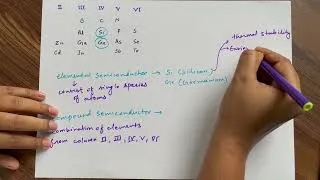 II III IV V VI
B C N
Al Si P S
Zn Ga Ge As Se
Cd In Sb Te
elemental semiconductor → Si (Silicon) → thermal stability
consist of single species of atoms
Ge (Germanium)
compound semiconductor →
combination of elements
from column II, III, IV, V, VI